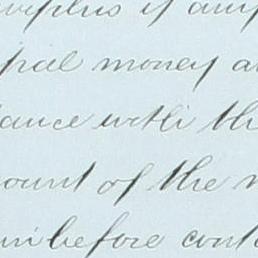 surplus if any
pal money a
ance with th
ount of the
before cont